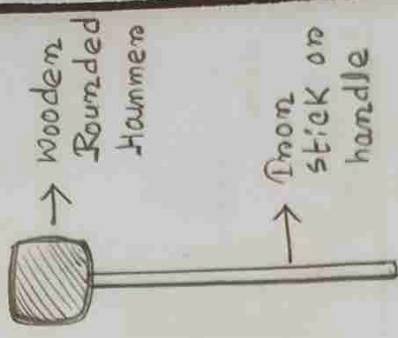 Wooden
Rounded
Hammer
Iron
stick or
handle